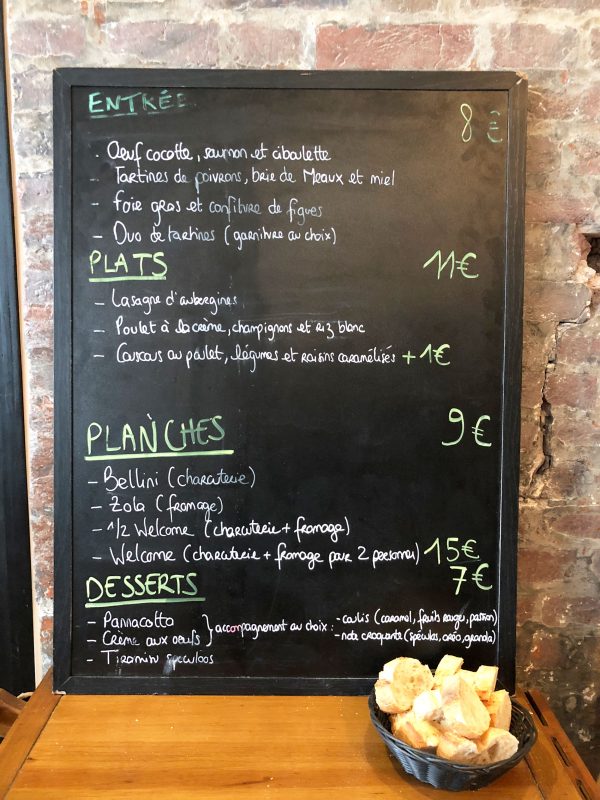 ENTRÉE 8 €
. Oeuf cocotte, saumon et ciboulette
- Tartines de poivrons, brie de Meaux et miel
- Foie gras et confiture de figues
- Duo de tartines (garniture au choix)
PLATS 11€
- Lasagne d'aubergines
- Poulet à la crème, champignons et riz blanc
- Couscous au poulet, légumes et raisins caramélisés +1€
PLANCHES 9€
- Bellini (charcuterie)
- Zola (fromage)
- 1/2 Welcome (charcuterie + fromage)
- Welcome (charcuterie + fromage pour 2 personnes) 15€
DESSERTS 7€
- Pannacotta
- Crème aux oeufs } accompagnement au choix :
- coulis (caramel, fruits rouge, passion)
- note croquante (spéculos, oréo, granola)
- Tiramisu speculoos